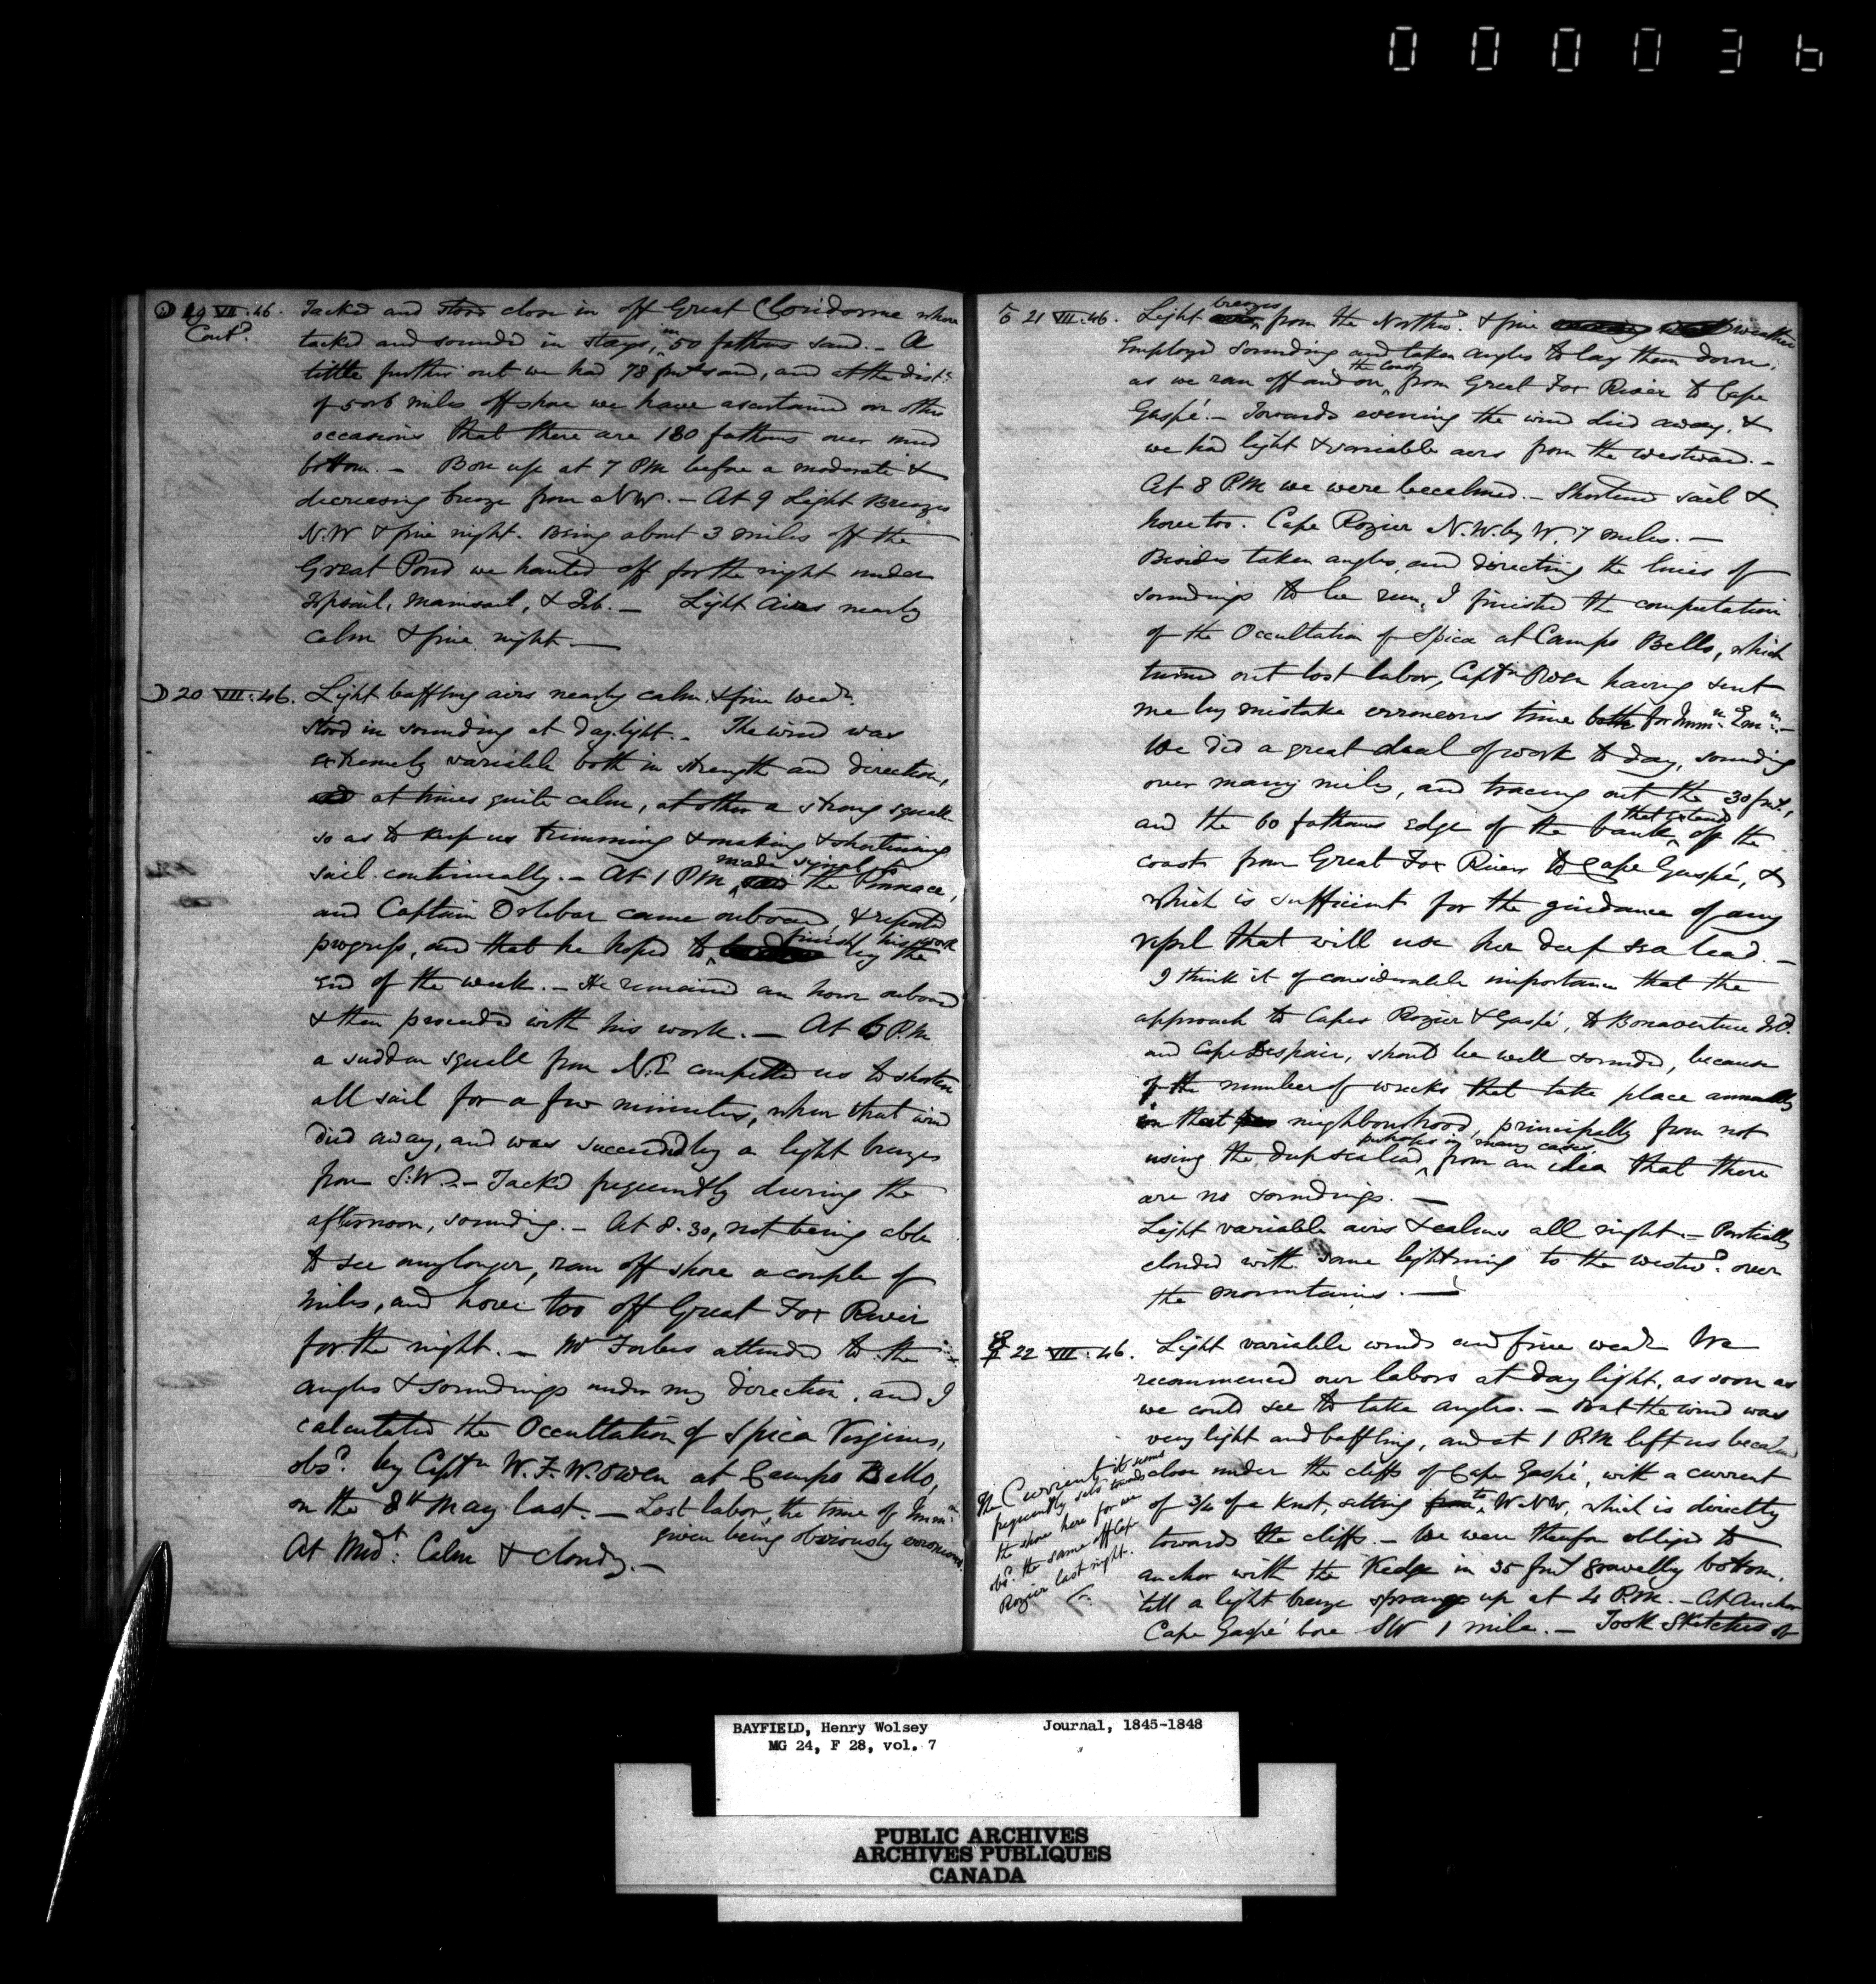 000036
☉ 19 VII. 46. Tacked and stood close in off Great Cloridorme where
Cont.d tacked and sounded in stays, in 50 fathoms sand. - A
little further out we had 78 fms sand, and at the dist.ce
of 5 or 6 miles off shore we have ascertained on other
occasions that there are 180 fathoms over mud
bottom. - Bore up at 7 PM before a moderate &
decreasing breeze from NW. - At 9 Light Breezes
N.W & fine night. Being about 3 miles off the
Great Pond we hauled off for the night under
Topsail, Mainsail, & Jib. - Light Airs nearly
calm & fine night -
☽ 20 VII. 46. Light baffling airs nearly calm & fine wea.r
Stood in sounding at daylight. - The wind was
extremely variable both in strength and direction,
and at times quite calm, at other a strong squall
so as to keep us trimming & making & shortening
sail continually. - At 1 PM made signal to the Pinnace,
and Captain Orlebar came onboard & reported
progress, and that he hoped to finish his work by the
end of the week. - He remained an hour onboard
& then proceeded with his work. - At 6 P.M
a sudden squall from N.E compelled us to shorten
all sail for a few minutes, when that wind
died away, and was succeeded by a light breeze
from S.W. - Tacked frequently during the
afternoon, sounding. - At 8.30, not being able
to see any longer, ran off shore a couple of
miles, and hove too off Great Fox River
for the night. - Mr Forbes attended to the
angles & soundings under my direction, and I
calculated the Occultation of Spica Virginis,
obs.d by Capt.n W. F. W. Owen at Campo Bello,
on the 8th May last. - Lost labor, the time of Imm.n
given being obviously erroneous.
At Mid.t Calm & cloudy. -
♂ 21 VII. 46. Light breezes from the North.d & fine weather
Employed sounding and taken angles to lay them down,
as we ran off and on the coast from Great Fox River to Cape
Gaspé. - Towards evening the wind died away, &
we had light & variable airs from the Westward. -
At 8 P.M we were becalmed. - Shortened sail &
hove too. Cape Rozier N.W. by W. 7 miles. -
Besides taken angles, and directing the lines of
soundings to be run, I finished the computation
of the Occultation of Spica at Campo Bello, which
turned out lost labor, Capt.n Owen having sent
me by mistake erroneous time both for Imm.n & Em.n -
We did a great deal of work to day, sounding
over many miles, and tracing out the 30 fms.,
and the 60 fathoms edge of the bank that extends off the
coast from Great Fox River to Cape Gaspé, &
which is sufficient for the guidance of any
vessel that will use her deep sea lead. -
I think it of considerable importance that the
approach to Capes Rozier & Gaspé, to Bonaventure Isl.d
and Cape Despair, should be well sounded, because
of the number of wrecks that take place annually
in that neighbourhood, principally from not
using the deep sea lead, perhaps in many cases, from an idea that there
are no soundings. -
Light variable airs & calms all night. - Partially
clouded with some lightning to the westw.d over
the mountains. -
☿ 22 VII. 46. Light variable winds and fine wea.r We
recommenced our labors at daylight, as soon as
we could see to take angles. - But the wind was
very light and baffling, and at 1 P.M left us becalmed
close under the cliffs of Cape Gaspé, with a current
of 3/4 of a Knot, setting from to WNW, which is directly
towards the cliffs. - We were therefore obliged to
anchor with the Kedge in 35 fms gravelly bottom,
till a light breeze sprang up at 4 P.M. - At Anchor
Cape Gaspé bore SW 1 mile. - Took Sketches of
The Current it seems
frequently sets towards
the shore here for we
obs.d the same off Cape
Rozier last night.
BAYFIELD, Henry Wolsey Journal, 1845-1848
MG 24, F 28, vol. 7
PUBLIC ARCHIVES
ARCHIVES PUBLIQUES
CANADA